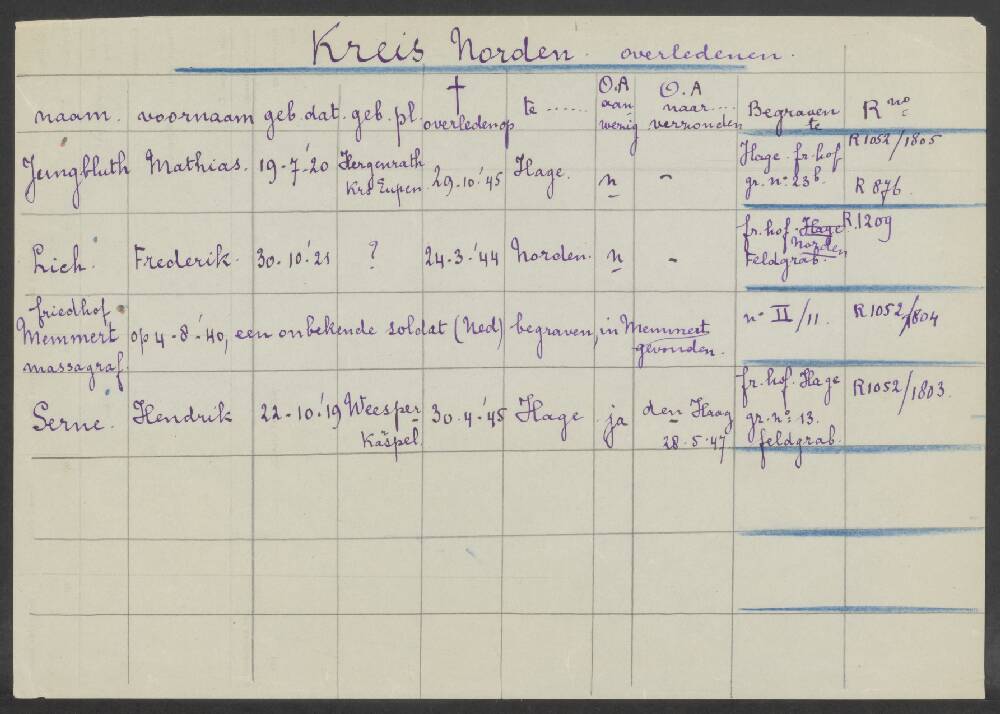 Kreis Norden. overledenen.
naam. voornaam geb. dat. geb. pl. † overleden op te ...... O.A aan wezig O.A naar .... verzonden Begraven te R no
Jungbluth Mathias. 19-7-'20 Hergenrath Krs Eupen 29.10.'45 Hage. n - Hage fr. hof gr. no. 23b. R1052/1805 R 876.
Lich. Frederik. 30-10-'21 ? 24-3-'44 Norden. n - fr. hof. Hage Norden Feldgrab. R.1209
friedhof Memmert massagraf. op 4-8-'40, een onbekende soldat (Ned) begraven, in Memmert gevonden. no II/11. R1052/1804
Serne. Hendrik 22-10-'19 Weesper Käspel. 30.4-'45 Hage ja den Haag 28.5.'47 fr. hof. Hage gr. no: 13. feldgrab. R1052/1803.